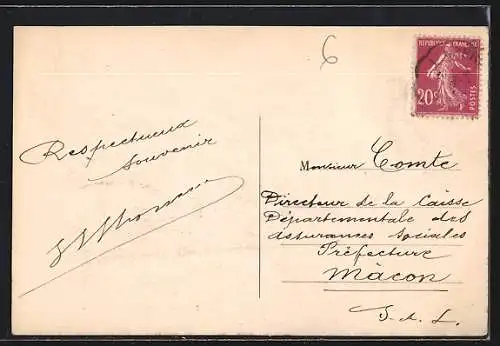 6
REPUBLIQUE FRANCAISE
20c
POSTES
Respectueux
souvenir
Monsieur Comte
Directeur de la Caisse
Départementale des
assurances sociales
Préfecture
Mâcon
S. et L.